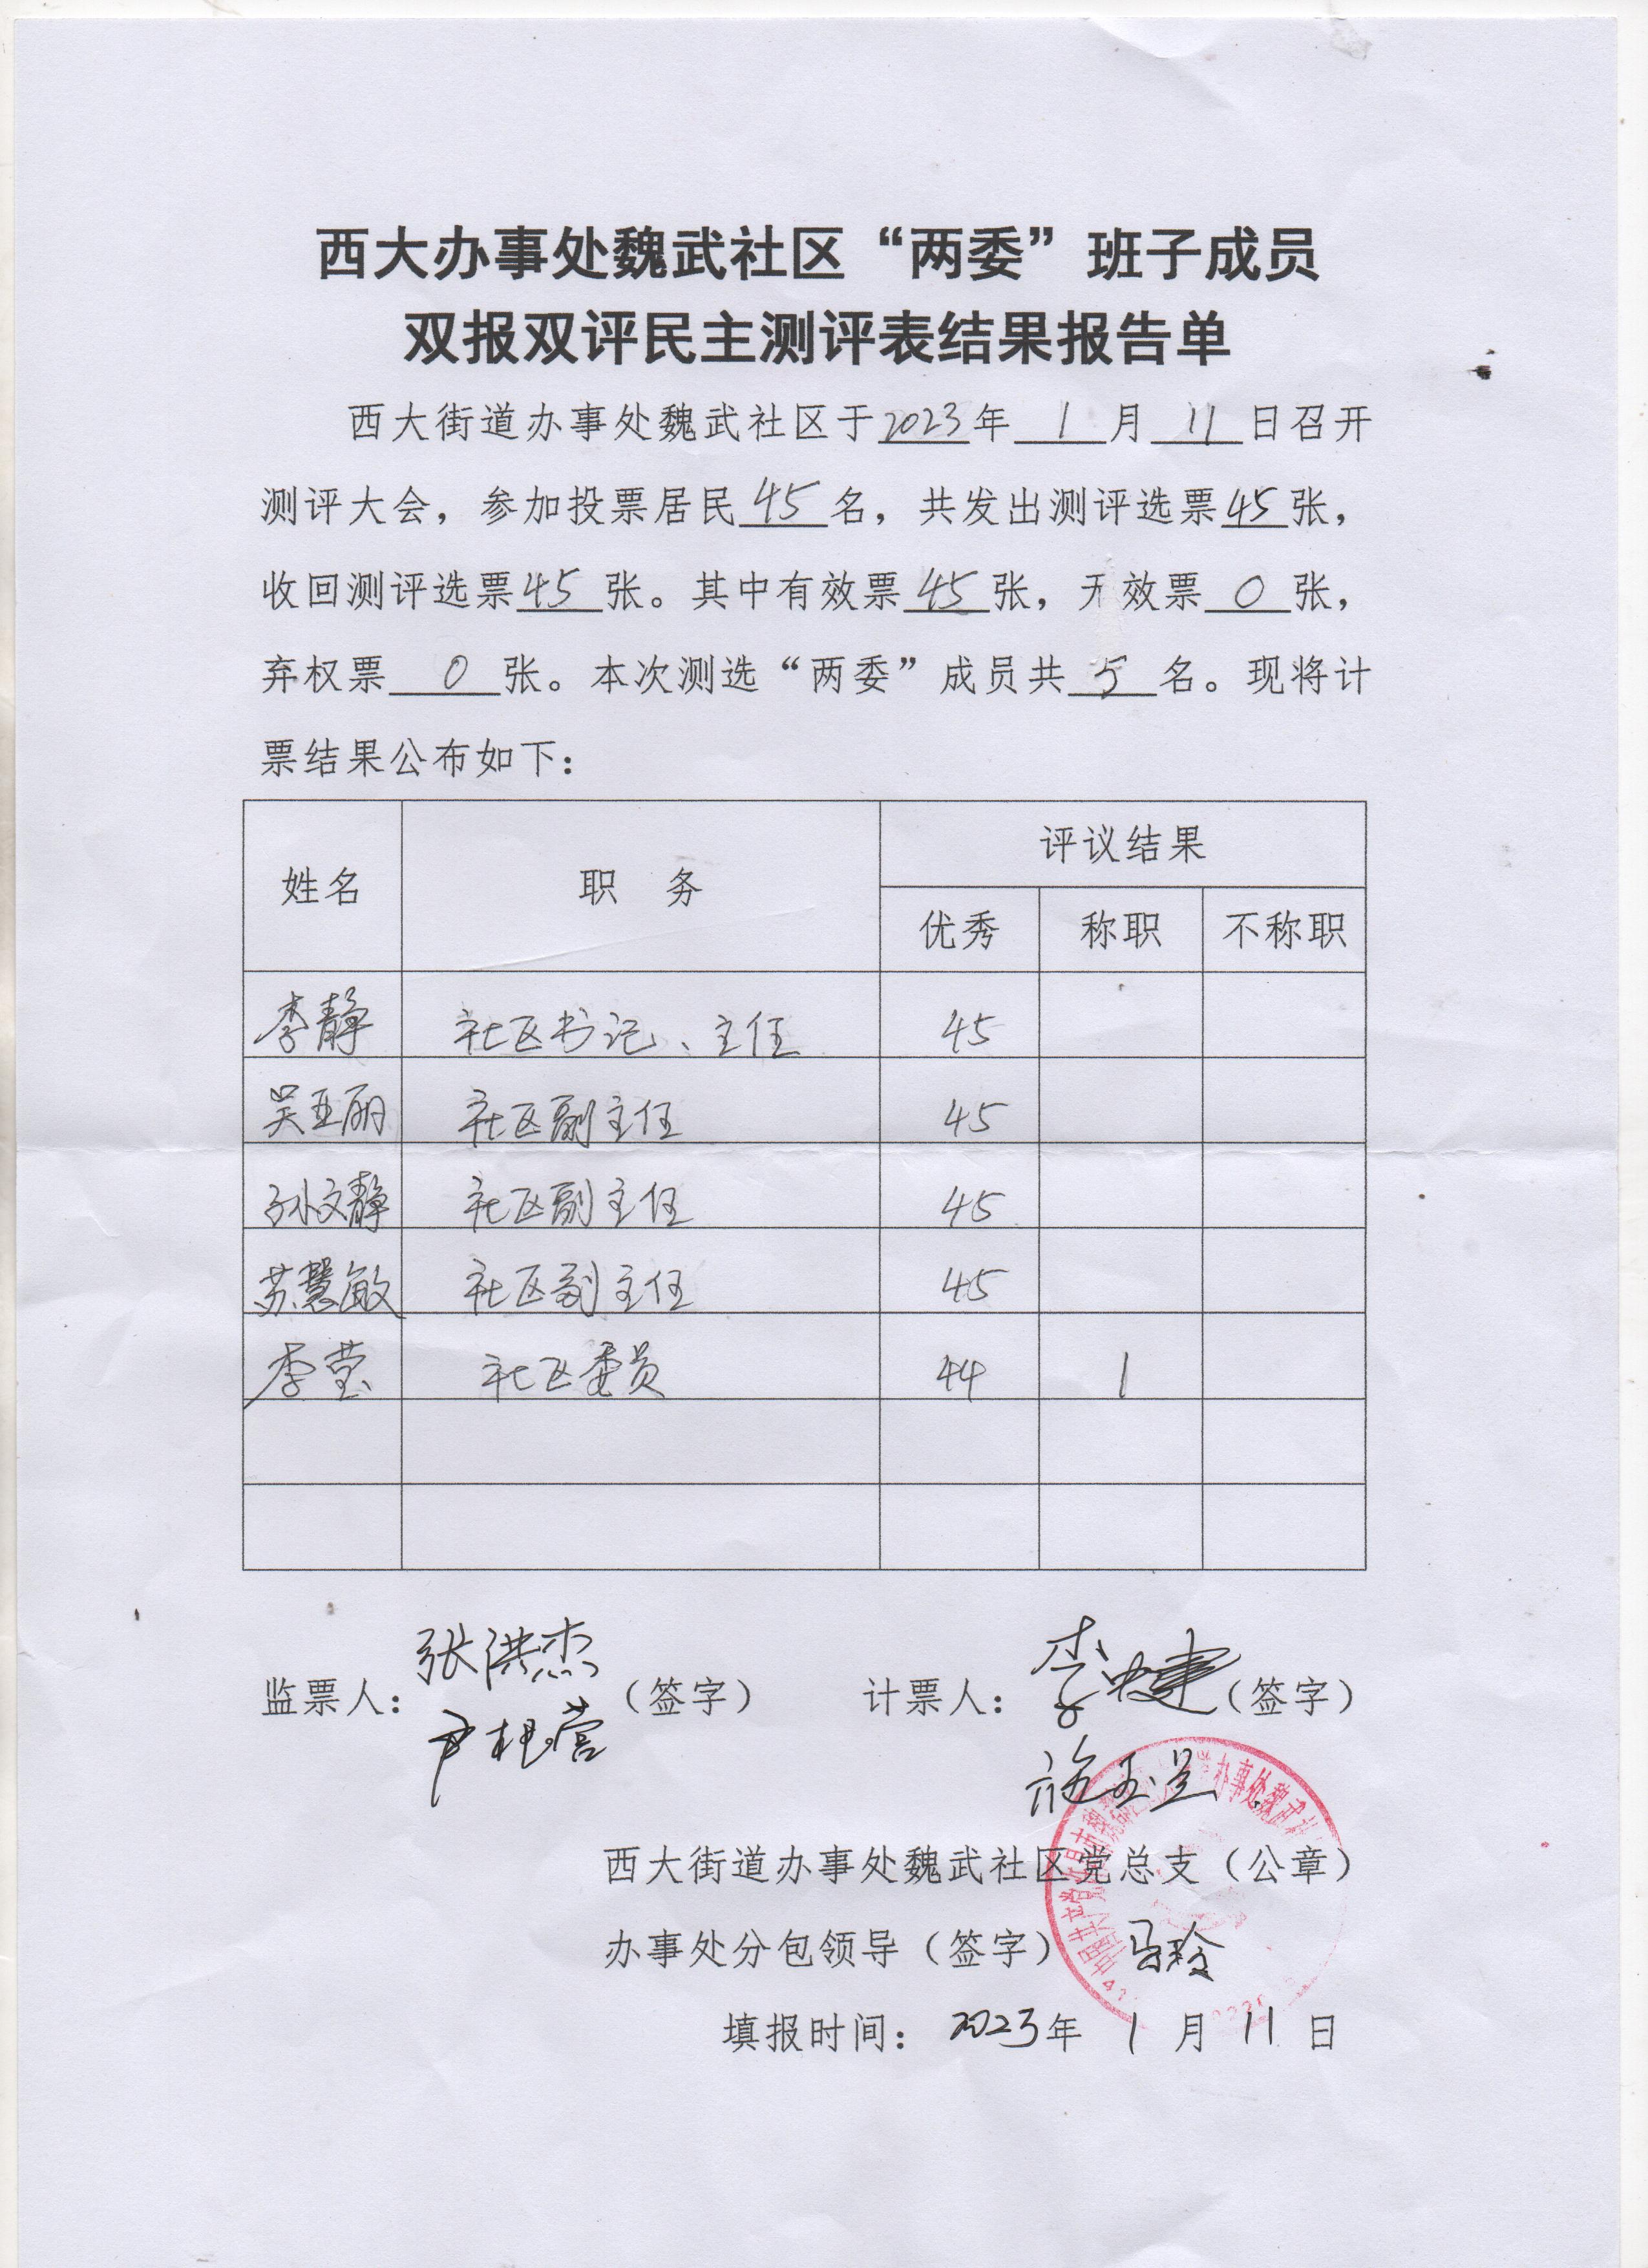 西大办事处魏武社区“两委”班子成员
双报双评民主测评表结果报告单
西大街道办事处魏武社区于2023年1月11日召开
测评大会，参加投票居民45名，共发出测评选票45张，
收回测评选票45张。其中有效票45张，无效票0张，
弃权票0张。本次测选“两委”成员共5名。现将计
票结果公布如下：
姓名 职 务 评议结果
优秀 称职 不称职
李静 社区书记、主任 45
吴亚丽 社区副主任 45
孙文静 社区副主任 45
苏慧敏 社区副主任 45
李莹 社区委员 44 1
张洪杰
监票人： （签字） 计票人： （签字）
西大街道办事处魏武社区党总支（公章）
办事处分包领导（签字） 马玲
填报时间： 2023年 1 月 11 日